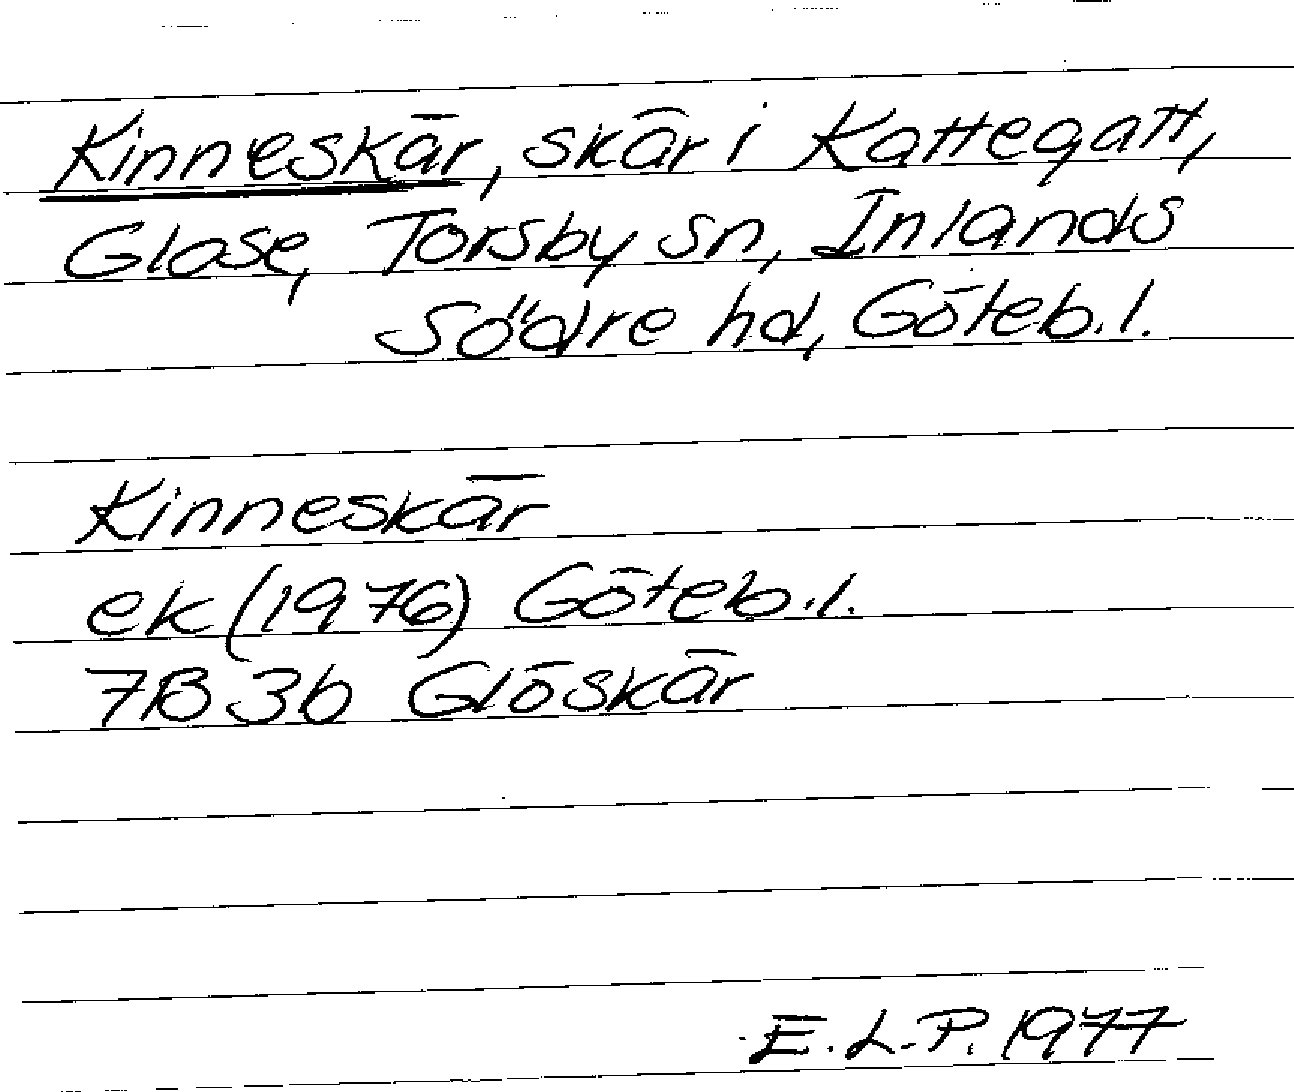 Kinneskär, skär i Kattegatt,
Glose, Torsby sn, Inlands
Södre hd, Göteb.l.
Kinneskär
ek (1976) Göteb.l.
7B 3b Glöskär
E.L.P. 1977